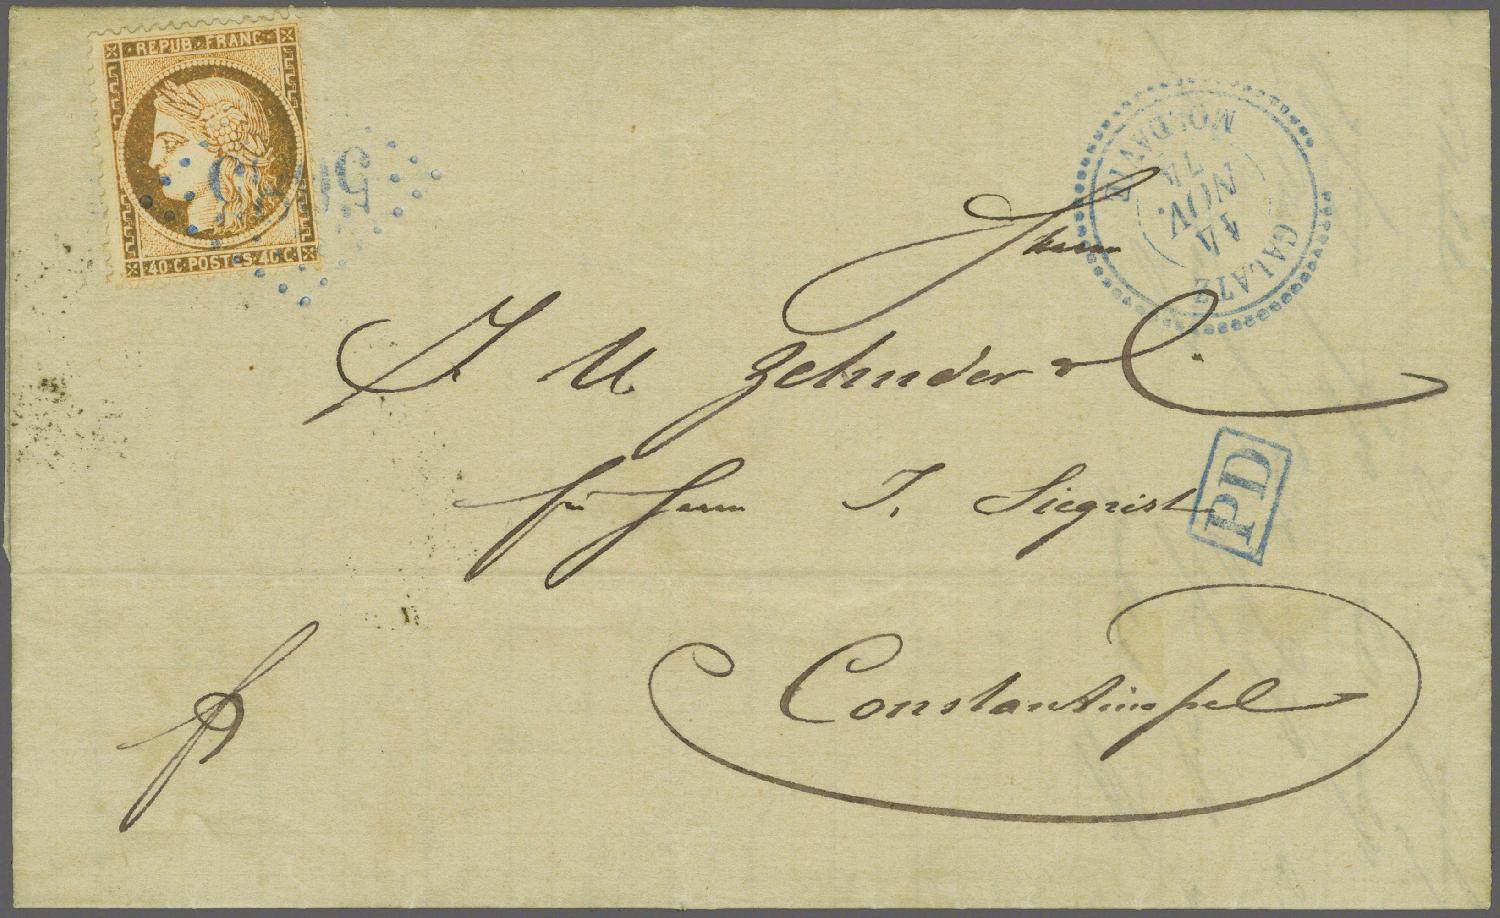 REPUB. FRANC.
40·C·POSTES·40·C
GALATZ
MOLDAVIE
14
NOV.
74
Herrn
J. U. Zehnder &
für Herrn J. Siegrist
PD
Constantinopel